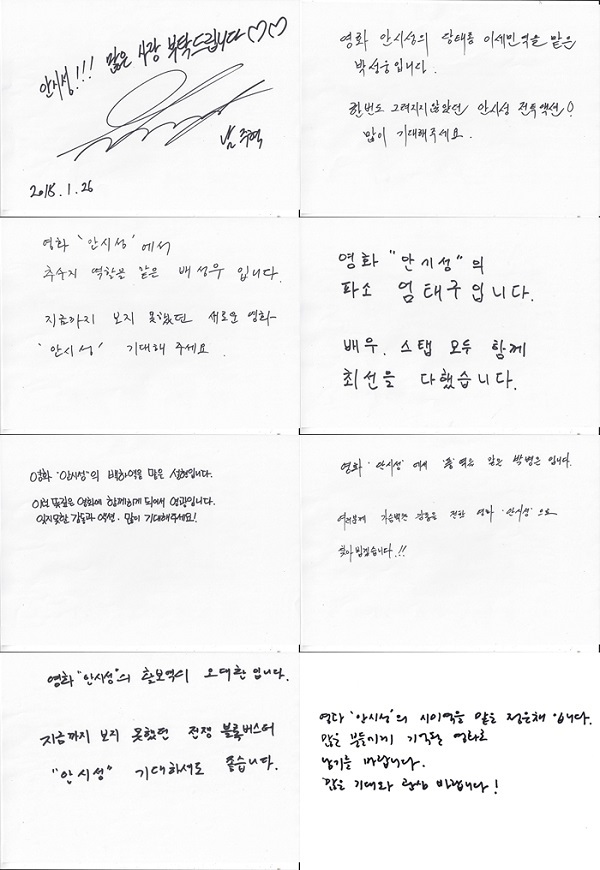 안시성!!! 많은 사랑 부탁드립니다♡♡
남주혁
2018.1.26
영화 안시성의 당태종 이세민역을 맡은
박성웅입니다.
한번도 그려지지않았던 안시성 전투액션!
많이 기대해주세요.
영화 '안시성'에서
추수지 역할을 맡은 배성우 입니다.
지금까지 보지 못했던 새로운 영화
'안시성' 기대해 주세요.
영화 "안시성"의
파소 엄태구입니다.
배우. 스탭 모두 함께
최선을 다했습니다.
영화 '안시성'의 백하역을 맡은 설현입니다.
이런 뜻깊은 영화에 함께하게 되어서 영광입니다.
잊지못할 감동과 액션. 많이 기대해주세요!
영화 '안시성'에서 '풍'역을 맡은 박병은 입니다.
여러분께 가슴벅찬 감동을 전할 영화 '안시성'으로
찾아 뵙겠습니다.!!
영화 "안시성"의 활보역의 오대환입니다.
지금까지 보지 못했던 전쟁 블록버스터
"안시성" 기대하셔도 좋습니다.
영화 '안시성'의 시미역을 맡은 정은채 입니다.
많은 분들에게 기억될 영화로
남기를 바랍니다.
많은 기대와 관심 바랍니다!